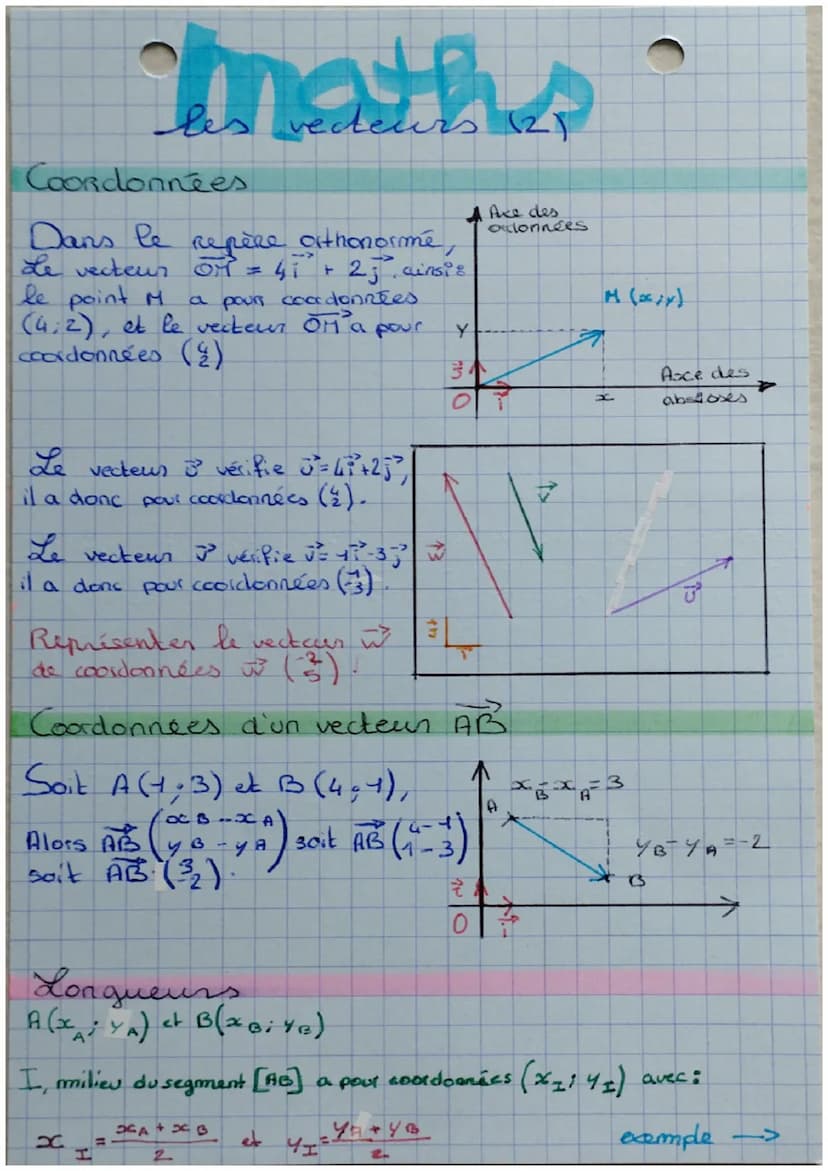 maths
les vecteurs (2)
Coordonnées
Dans le repère orthonormé,
Le vecteur OM = 4i + 2j, ainsi
le point M a pour coordonnées
(4;2), et le vecteur OM a pour
coordonnées (4 2)
Axe des
ordonnées
M (x;y)
Y
j
O
i
x
Axe des
abscisses
Le vecteur u vérifie u = 4i + 2j,
il a donc pour coordonnées (4 2).
Le vecteur v vérifie v = 1i - 3j
il a donc pour coordonnées (1 -3).
Représenter le vecteur w
de coordonnées w (-2 5) !
w
v
u
j
i
Coordonnées d'un vecteur AB
Soit A(1;3) et B(4;1),
Alors AB (xB - xA
yB - yA) soit AB (4-1
1-3)
soit AB (3 -2).
xB - xA = 3
A
yB - yA = -2
B
O
i
Longueurs
A(xA; yA) et B(xB; yB)
I, milieu du segment [AB] a pour coordonnées (xI; yI) avec:
xI = xA + xB / 2 et yI = yA + yB / 2
exemple →